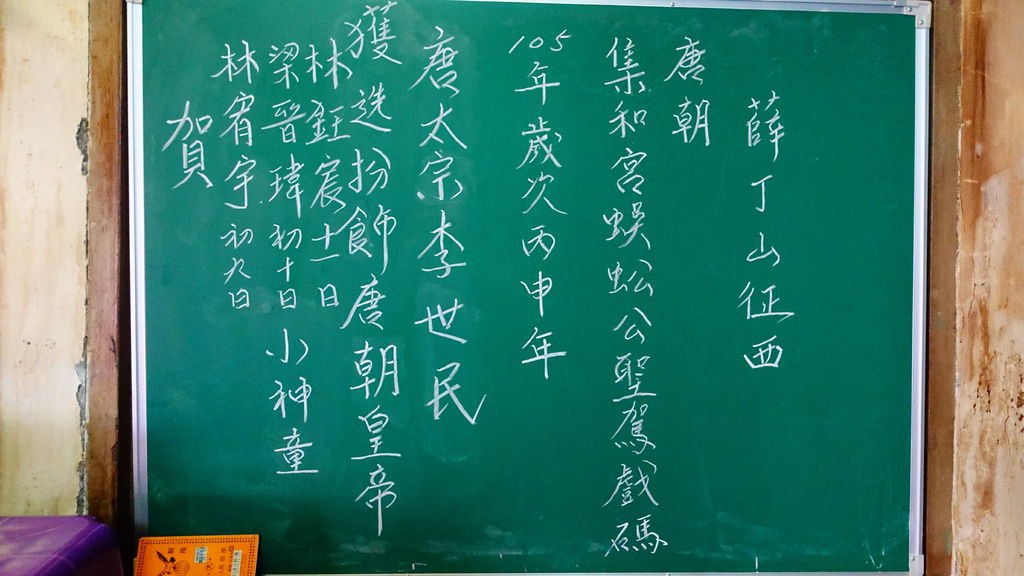 薛丁山征西
唐朝
集和宮蜈蚣公聖駕戲碼
105年歲次丙申年
唐太宗李世民
獲選扮飾唐朝皇帝
林鈺宸十一日
梁晉瑋初十日小神童
林宥宇初九日
賀